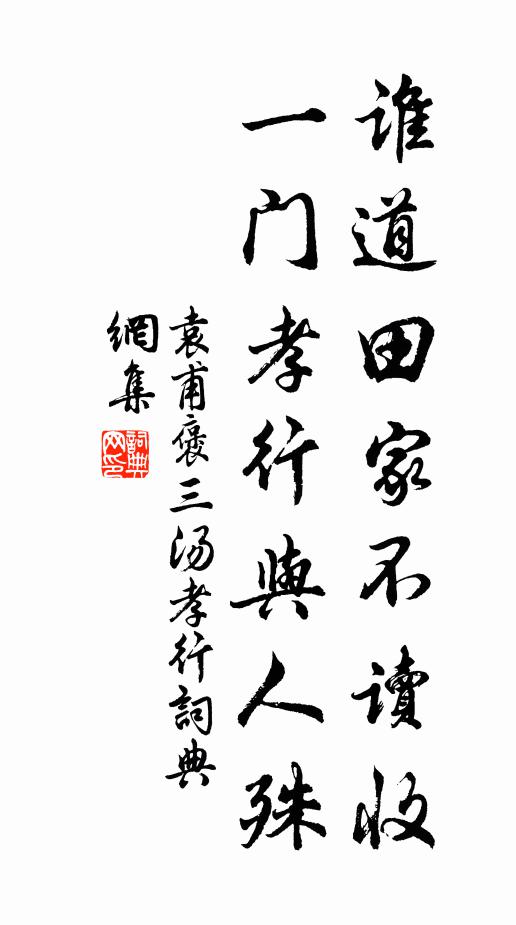 谁道田家不读收
一门孝行與人殊
袁甫褒三汤孝行詞典
網集
詞典网印